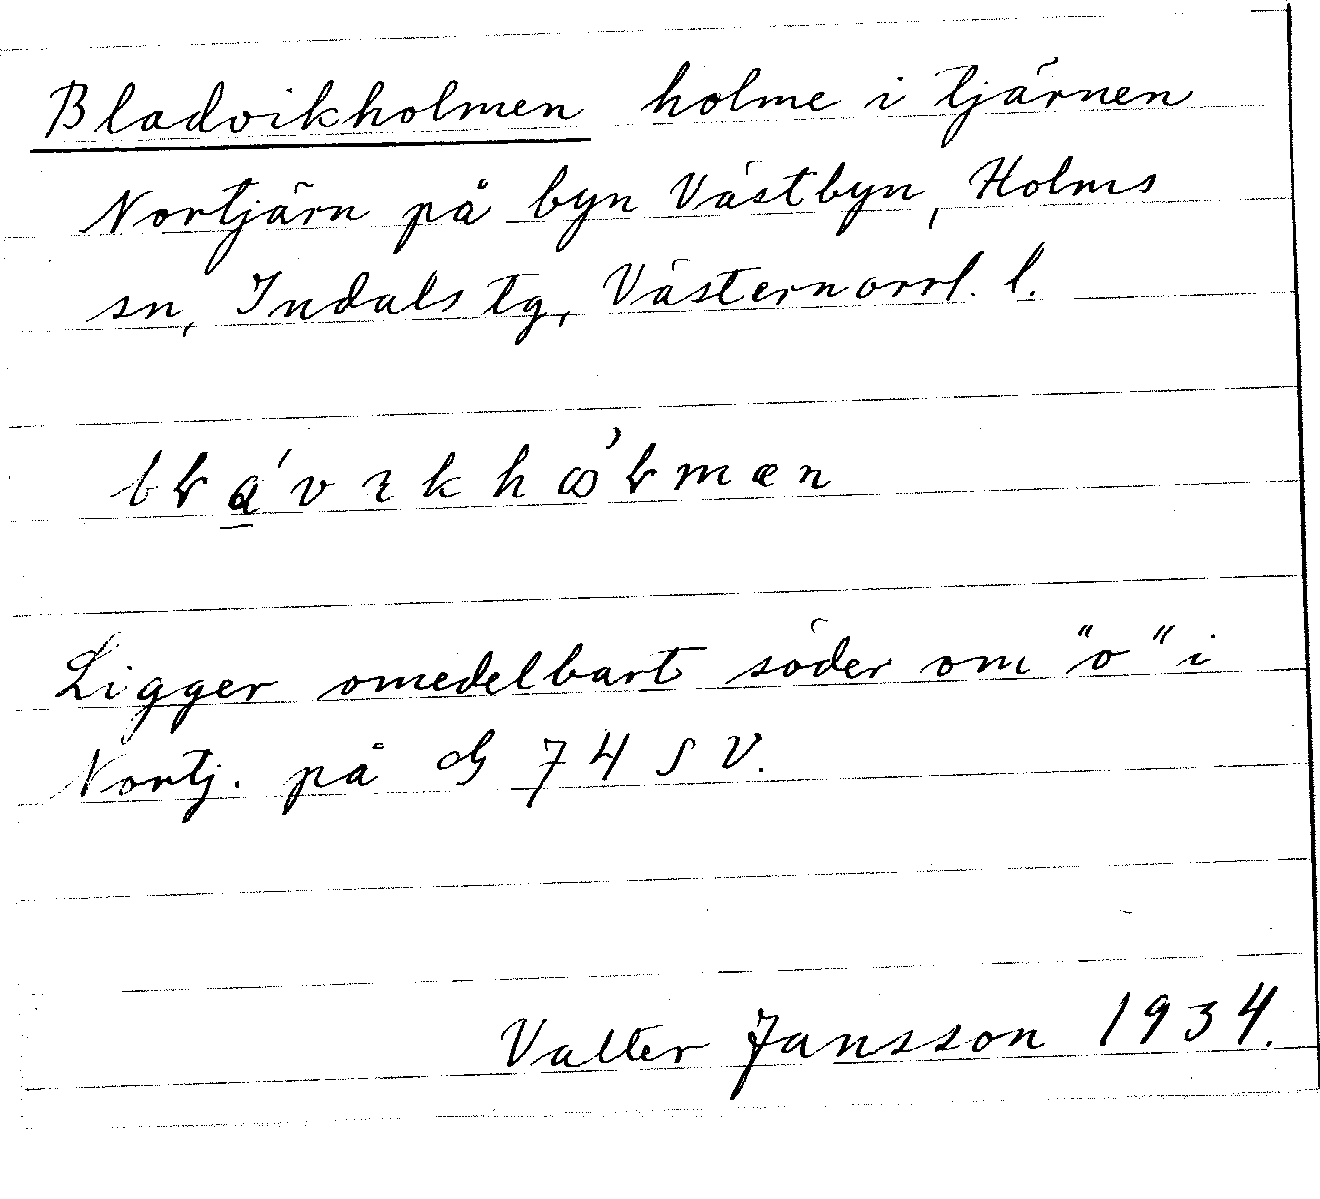 Bladvikholmen holme i tjärnen
Nortjärn på byn Västbyn, Holms
sn, Indals tg, Västernorrl. l.
Ligger omedelbart söder om "o" i
Nortj. på G 74 S V.
Valter Jansson 1934.